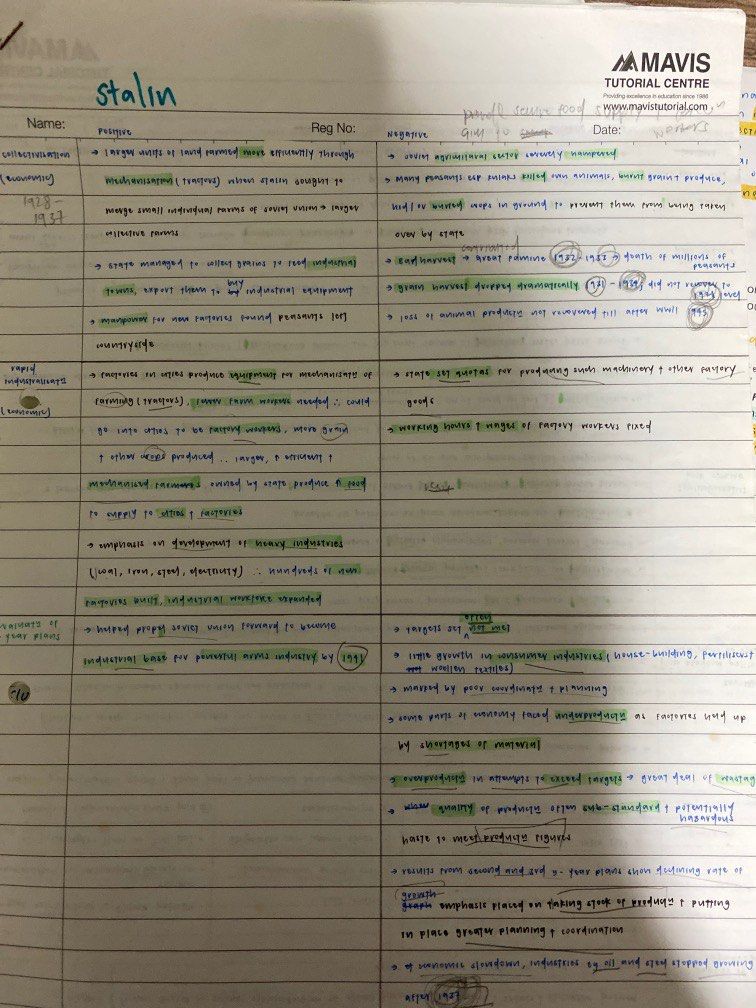 MAVIS
TUTORIAL CENTRE
Providing excellence in education since 1980
www.mavistutorial.com
stalin
Name:
Reg No:
Date:
POSITIVE
NEGATIVE
collectivisation
(economic)
1928 -
1937
→ larger units of land farmed more efficiently through
mechanisation (tractors) when stalin sought to
merge small individual farms of soviet union → larger
collective farms
→ state managed to collect grains to feed industrial
towns, export them to buy industrial equipment
→ manpower for new factories found peasants left
countryside
→ soviet agricultural sector severely hampered
→ many peasants esp kulaks killed own animals, burnt grain + produce,
hid/or buried crops in ground to prevent them from being taken
over by state
contributed
→ Bad harvest → great famine 1932 - 1933 → death of millions of
peasants
→ grain harvest dropped dramatically 1931 - 1934, did not recover to
1928 level
→ loss of animal productn not recovered till after WWII 1953
rapid
industrialisatn
(economic)
→ factories in cities produce equipment for mechanisatn of
farming (tractors), fewer farm workers needed ∴ could
go into cities to be factory workers, more grain
+ other crops produced ∴ larger, + efficient +
mechanised farmers owned by state produce ↑ food
to supply to cities + factories
→ emphasis on development of heavy industries
(coal, iron, steel, electricity) ∴ hundreds of new
factories built, industrial workforce expanded
→ state set quotas for producing such machinery + other factory
goods
→ working hours + wages of factory workers fixed
evaluatn of
year plans
→ helped propel soviet union forward to become
industrial base for powerful arms industry by 1941
→ targets set often not met
→ little growth in consumer industries (house-building, fertilisers +
woollen textiles)
→ marked by poor coordinatn + planning
→ some parts of economy faced underproductn as factories held up
by shortages of material
→ overproductn in attempts to exceed targets → great deal of wastag
→ quality of productn often sub-standard + potentially
hazardous
haste to meet productn figures
→ results from second and 3rd 5-year plans show declining rate of
growth
emphasis placed on taking stock of productn + putting
in place greater planning + coordination
→ economic slowdown, industries eg oil and steel stopped growing
after 1937